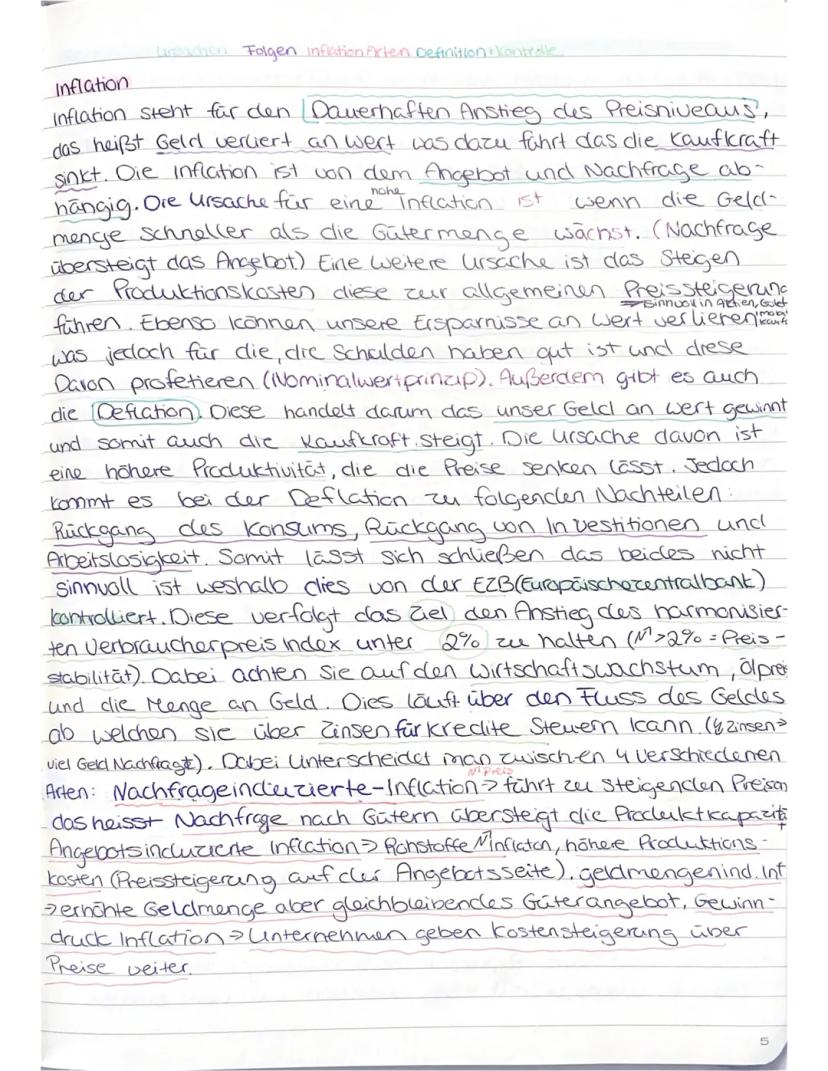 Ursachen Folgen Inflation Arten Definition + Kontrolle
Inflation
Inflation steht für den Dauerhaften Anstieg des Preisniveaus,
das heißt Geld verliert an wert was dazu führt das die Kaufkraft
sinkt. Die Inflation ist von dem Angebot und Nachfrage ab-
hängig. Die Ursache für eine hohe Inflation ist wenn die Geld-
menge schneller als die Gütermenge wächst. (Nachfrage
übersteigt das Angebot) Eine weitere Ursache ist das Steigen
der Produktionskosten diese zur allgemeinen Preissteigerung
→ sinnvoll in Aktien, Gold
führen. Ebenso können unsere Ersparnisse an Wert verlieren
was jedoch für die, die Schulden haben gut ist und diese
Davon profetieren (Nominalwertprinzip). Außerdem gibt es auch
die Deflation. Diese handelt darum das unser Geld an wert gewinnt
und somit auch die Kaufkraft steigt. Die Ursache davon ist
eine höhere Produktivität, die die Preise senken lässt. Jedoch
kommt es bei der Deflation zu folgenden Nachteilen:
Rückgang des Konsums, Rückgang von Investitionen und
Arbeitslosigkeit. Somit lässt sich schließen das beides nicht
sinnvoll ist weshalb dies von der EZB (Europäischezentralbank)
kontrolliert. Diese verfolgt das Ziel den Anstieg des harmonisier-
ten Verbraucherpreis Index unter 2% zu halten (↗>2% = Preis-
stabilität). Dabei achten Sie auf den Wirtschaftswachstum, ölprei
und die Menge an Geld. Dies läuft über den Fluss des Geldes
ab welchen sie über Zinsen für kredite Steuern kann. (↓ Zinsen →
viel Geld Nachfragt). Dabei Unterscheidet man zwischen 4 verschiedenen
↗ Preis
Arten: Nachfrageinduzierte-Inflation → führt zu steigenden Preisen
das heisst Nachfrage nach Gütern übersteigt die Produktkapazität
Angebotsinduzierte Inflation → Rohstoffe ↗ Inflaton, höhere Produktions-
kosten (Preissteigerung auf der Angebotsseite). geldmengenind. Inf
→ erhöhte Geldmenge aber gleichbleibendes Güterangebot, Gewinn-
druck Inflation → Unternehmen geben Kostensteigerung über
Preise weiter.
5